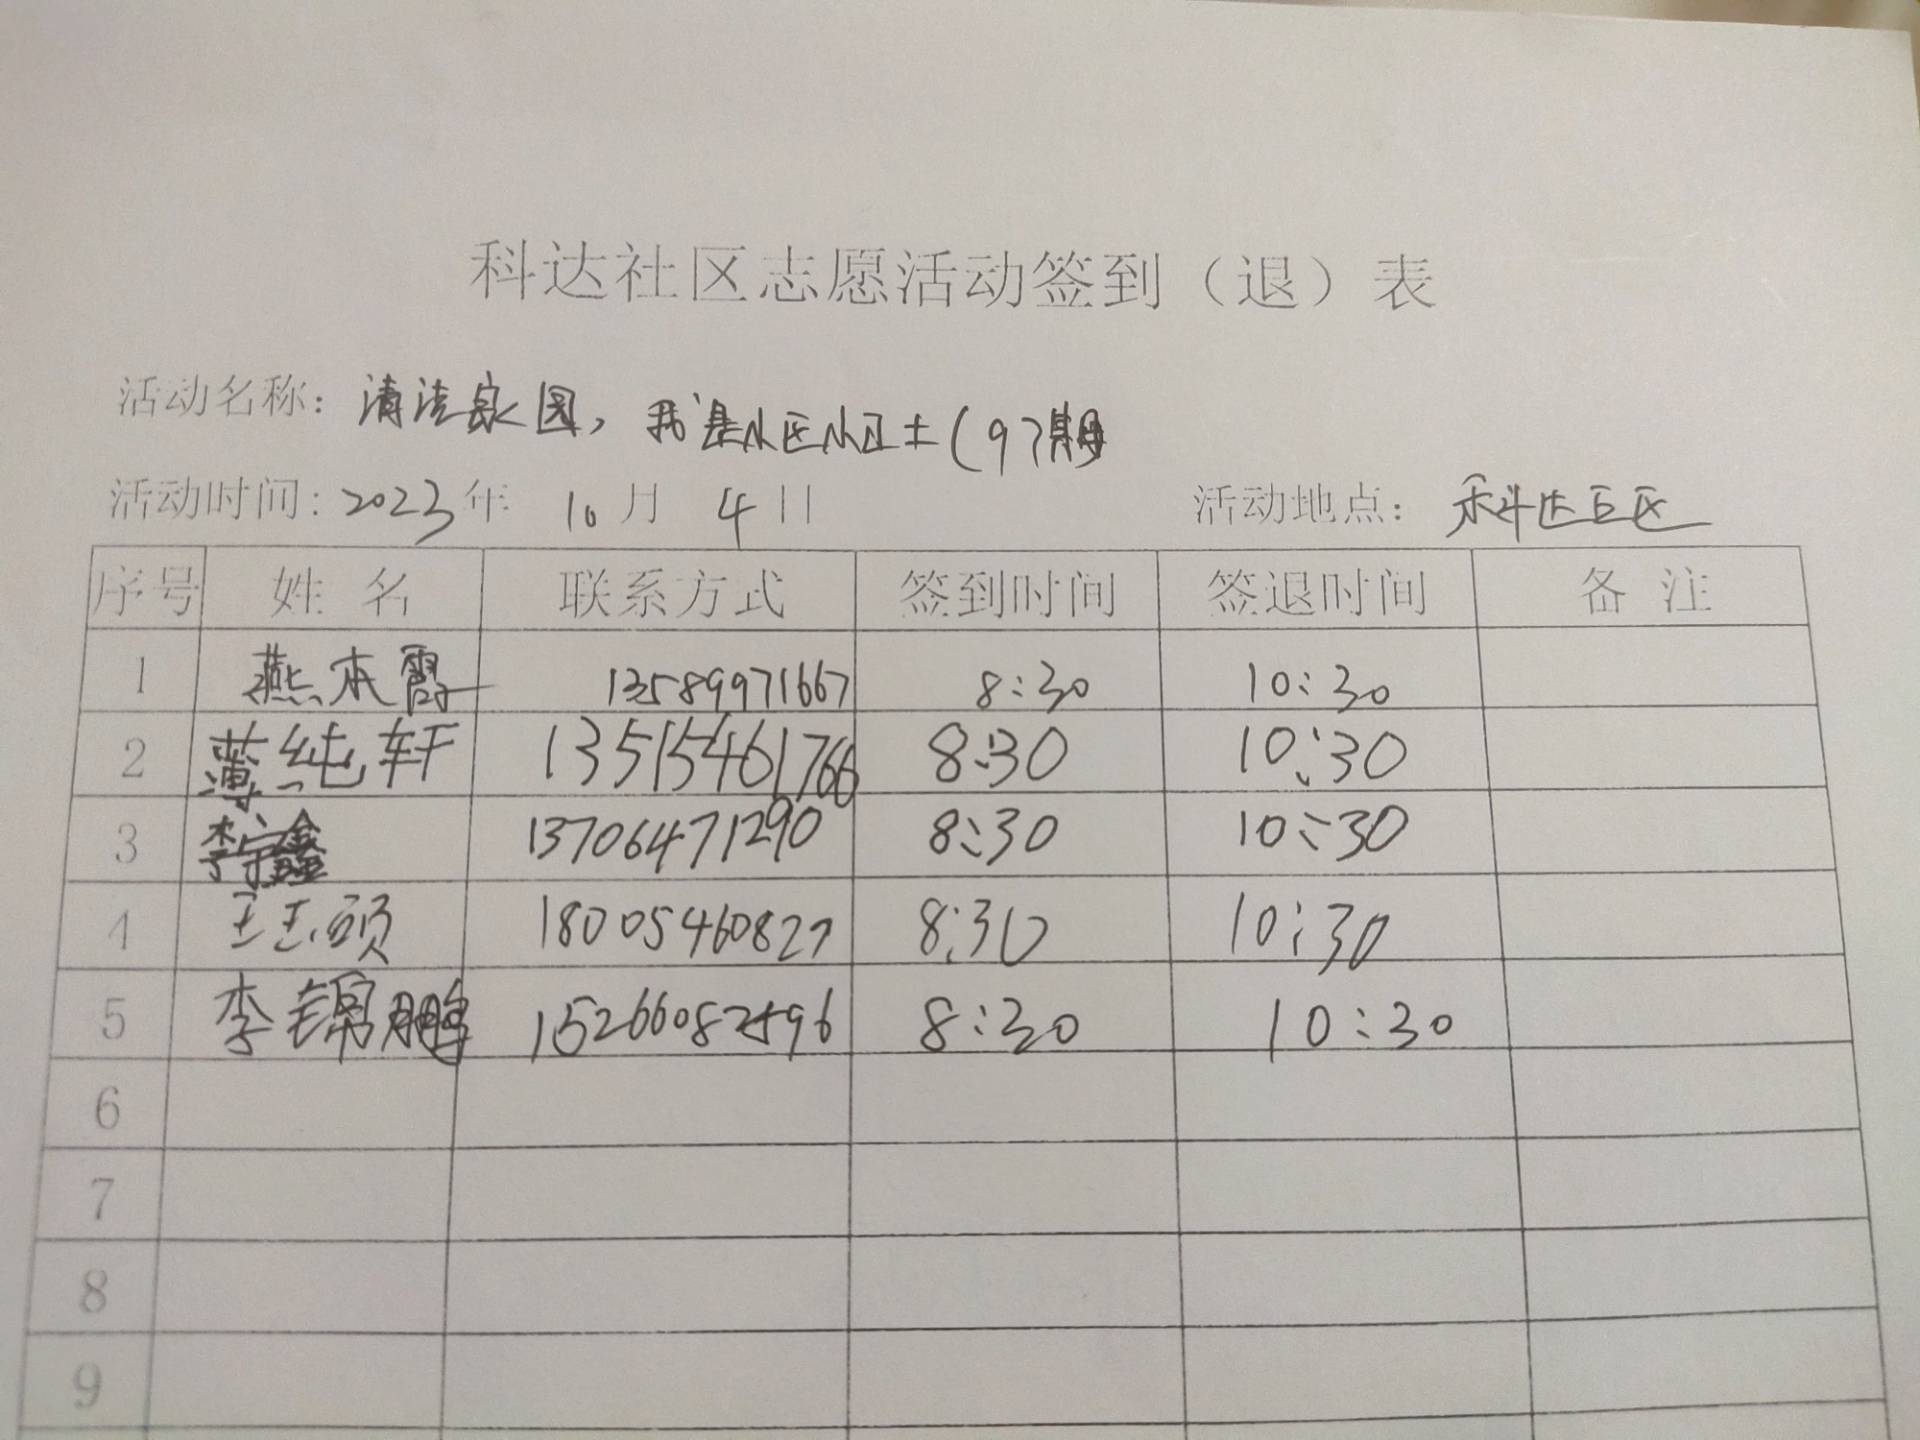 科达社区志愿活动签到（退）表
活动名称：清洁家园，我是小区小卫士(97期
活动时间：2023年 10月 4日 活动地点：科达社区
序号 姓名 联系方式 签到时间 签退时间 备注
1 燕本霞 13589971667 8:30 10:30
2 薄纯轩 13515461766 8:30 10:30
3 李宁鑫 13706471290 8:30 10:30
4 王硕 18005460827 8:30 10:30
5 李锦鹏 15266082596 8:30 10:30
6
7
8
9